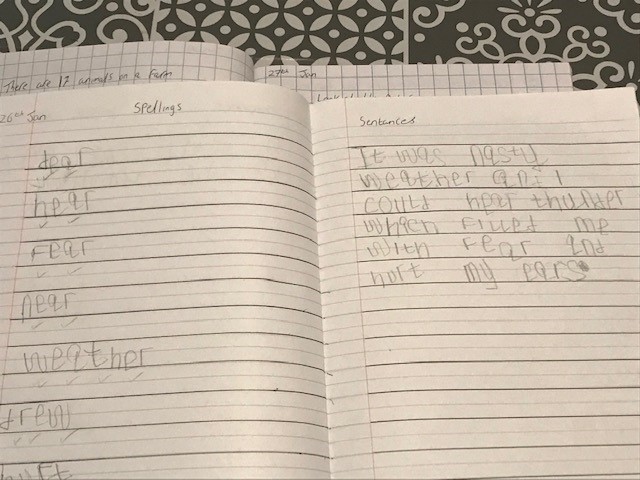 There are animals on a farm
27th Jan
26th Jan
Spellings
dear
hear
fear
near
weather
hurt
Sentences
It was nasty
weather and I
could hear thunder
which filled me
with fear and
hurt my ears